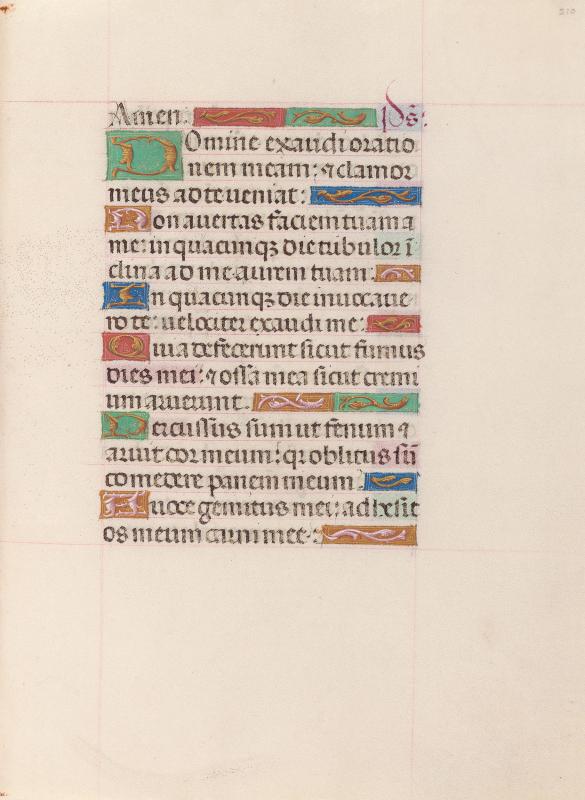 210
Amen. ps̄:
Domine exaudi oratio
nem meam: ⁊ clamor
meus ad te veniat:
Non avertas faciem tuam a
me: in quacunqꝫ die tribulor ī
clina ad me aurem tuam:
In quacunqꝫ die invocave
ro te: velociter exaudi me:
Quia defecerunt sicut fumus
dies mei: ⁊ ossa mea sicut cremi
um aruerunt.
Percussus sum ut fenum ⁊
aruit cor meum: qꝛ oblitus sū
comedere panem meum:
A voce gemitus mei: adhesit
os meum carni mee: